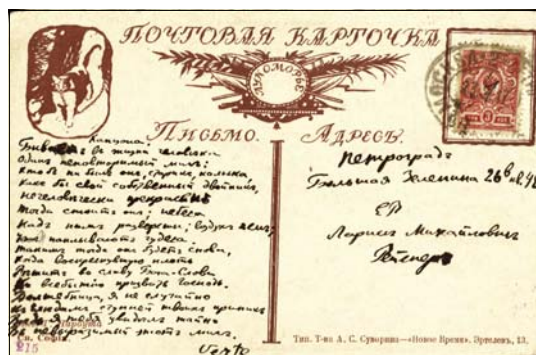 ПОЧТОВАЯ КАРТОЧКА
ЛУКОМОРЬЕ
ПИСЬМО.
АДРЕСЪ.
Бываетъ въ жизни человѣка
Одинъ неповторимый мигъ:
Кто бъ ни былъ онъ, старикъ, калѣка,
Какъ бы свой собственный двойникъ,
Нечеловѣчески прекрасенъ
Тогда стоитъ онъ; небеса
Надъ нимъ разверсты; воздухъ ясенъ;
Ужъ наплываютъ чудеса
Такимъ тогда онъ будетъ снова,
Когда воскресшую плоть
Рѣшитъ во славу Бога-Слова
Ко всебытію призвать Господь.
Волшебница, я не случайно
Къ слѣдамъ ступней твоихъ приникъ
Вѣдь я тебя увидѣлъ тайно
Въ невыразимый этотъ мигъ.
Петроградъ
Большая Зеленина 26
Ея
Ларисѣ Михайловнѣ
Рейснеръ
215
Тип. Т-ва А. С. Суворина—«Новое Время». Эртелевъ, 13.